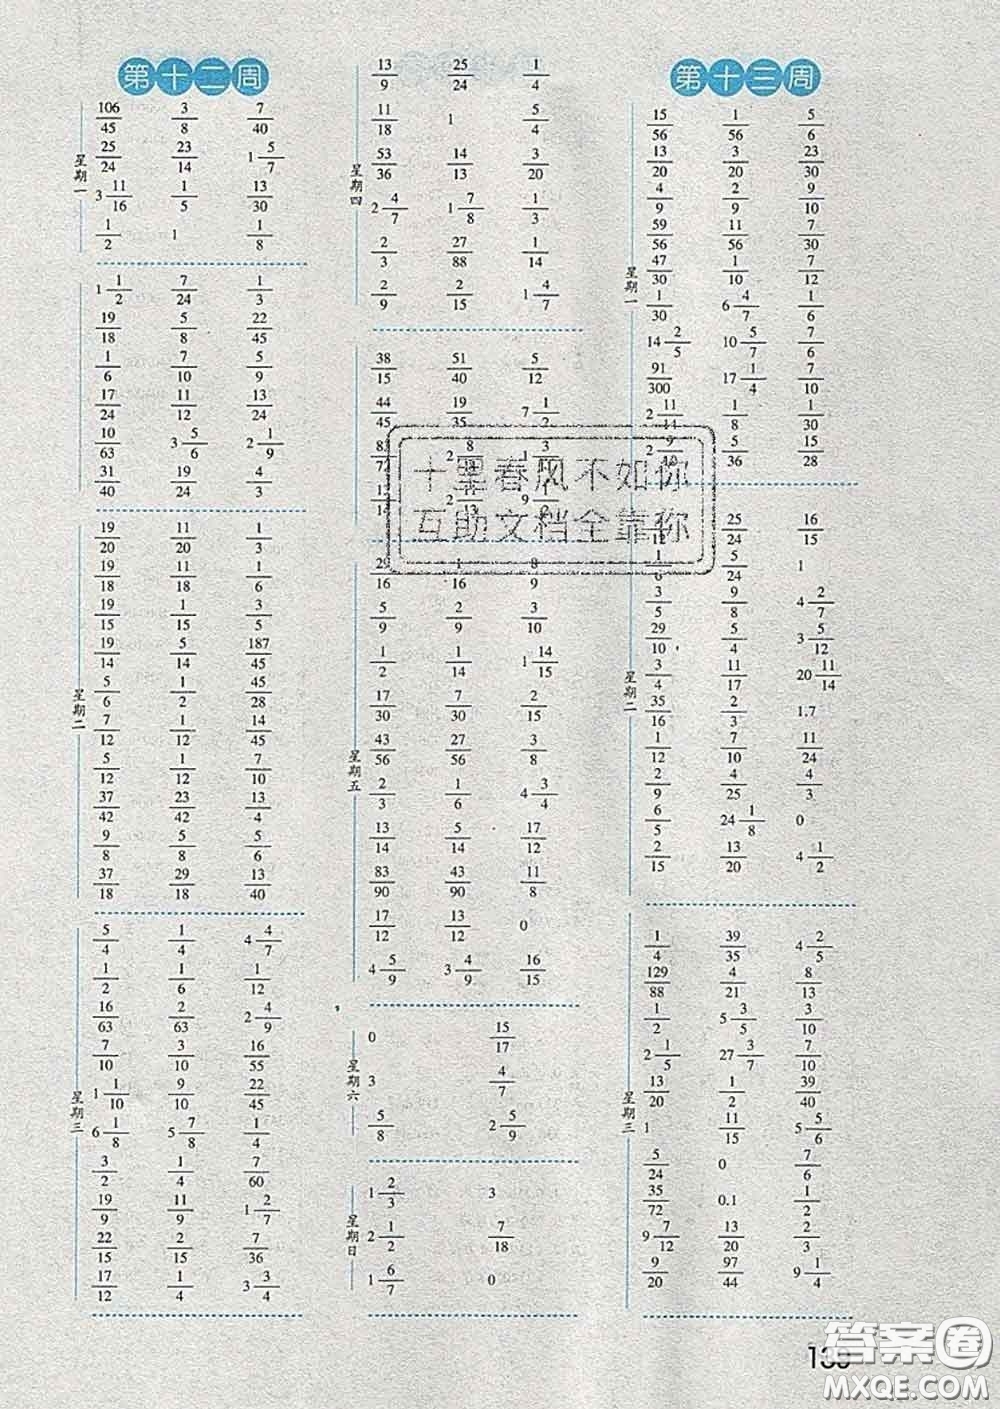 第十二周
星期一
106/45 3/8 7/40
25/24 23/14 1 5/7
3 11/16 1/5 13/30
1/2 1 1/8
星期二
1 1/2 7/24 1/3
19/18 5/8 22/45
1/6 7/10 5/9
17/24 11/12 13/24
10/63 3 5/6 2 1/9
31/40 19/24 4/3
19/20 11/20 1/3
19/18 11/18 1/6
19/15 1/15 3/5
19/14 5/14 187/45
5/6 1/2 45/28
7/12 1/12 14/45
5/12 1/12 7/10
37/42 23/42 13/4
9/8 5/8 5/6
37/18 29/18 13/40
星期三
5/4 1/4 4 4/7
1/2 1/6 1/12
16/63 2/63 2 4/9
7/10 3/10 16/55
1 1/10 9/10 22/45
6 1/8 5 7/8 1/4
3/2 1/4 7/60
19/9 11/9 1 2/7
22/15 2/15 7/36
17/12 1/4 3 3/4
星期四
13/9 25/24 1/4
11/18 1 5/4
53/36 14/13 3/20
2 4/7 1 7/8 1/3
2/3 27/88 1/14
2/9 2/15 1 4/7
38/15 51/40 5/12
44/45 19/35 7 1/2
十里春风不如你
互助文档全靠称
星期五
29/16 1/16 8/9
5/9 2/9 3/10
1/2 1/14 1 14/15
17/30 7/30 2/15
43/56 27/56 3/8
2/3 1/6 4 3/4
13/14 5/14 17/12
83/90 43/90 11/8
17/12 13/12 0
4 5/9 3 4/9 16/15
星期六
0 15/17
3 4/7
5/8 2 5/9
星期日
1 2/3 3
2 1/2 7/18
1 6/7 0
第十三周
星期一
15/56 1/56 5/6
13/20 3/20 23/30
4/9 2/9 9/10
59/56 11/56 7/30
47/30 1/10 7/12
1/30 6 4/7 1/3
14 2/5 10 5/7 7/6
91/300 17 1/4 7/10
2 11/14 1/8 13/30
5/36 15/28
星期二
25/24 16/15
1/6 5/24 1
3/5 9/8 4 2/7
29/10 5/4 3 5/12
3/4 11/17 20 11/14
35/16 2/3 1.7
1/12 7/10 11/24
2/9 4/25 4/3
6/5 24 1/8 0
2/15 13/20 4 1/2
星期三
1/4 39/35 4 2/5
129/88 4/21 8/13
1/2 5 3/5 3/10
2 1/5 27 3/7 7/10
13/20 1/2 39/40
1 11/15 5 5/6
5/24 0 7/6
35/72 0.1 4/5
9 7/12 13/20 5/6
9/20 97/44 9 1/4
答案圈
MXQE.COM